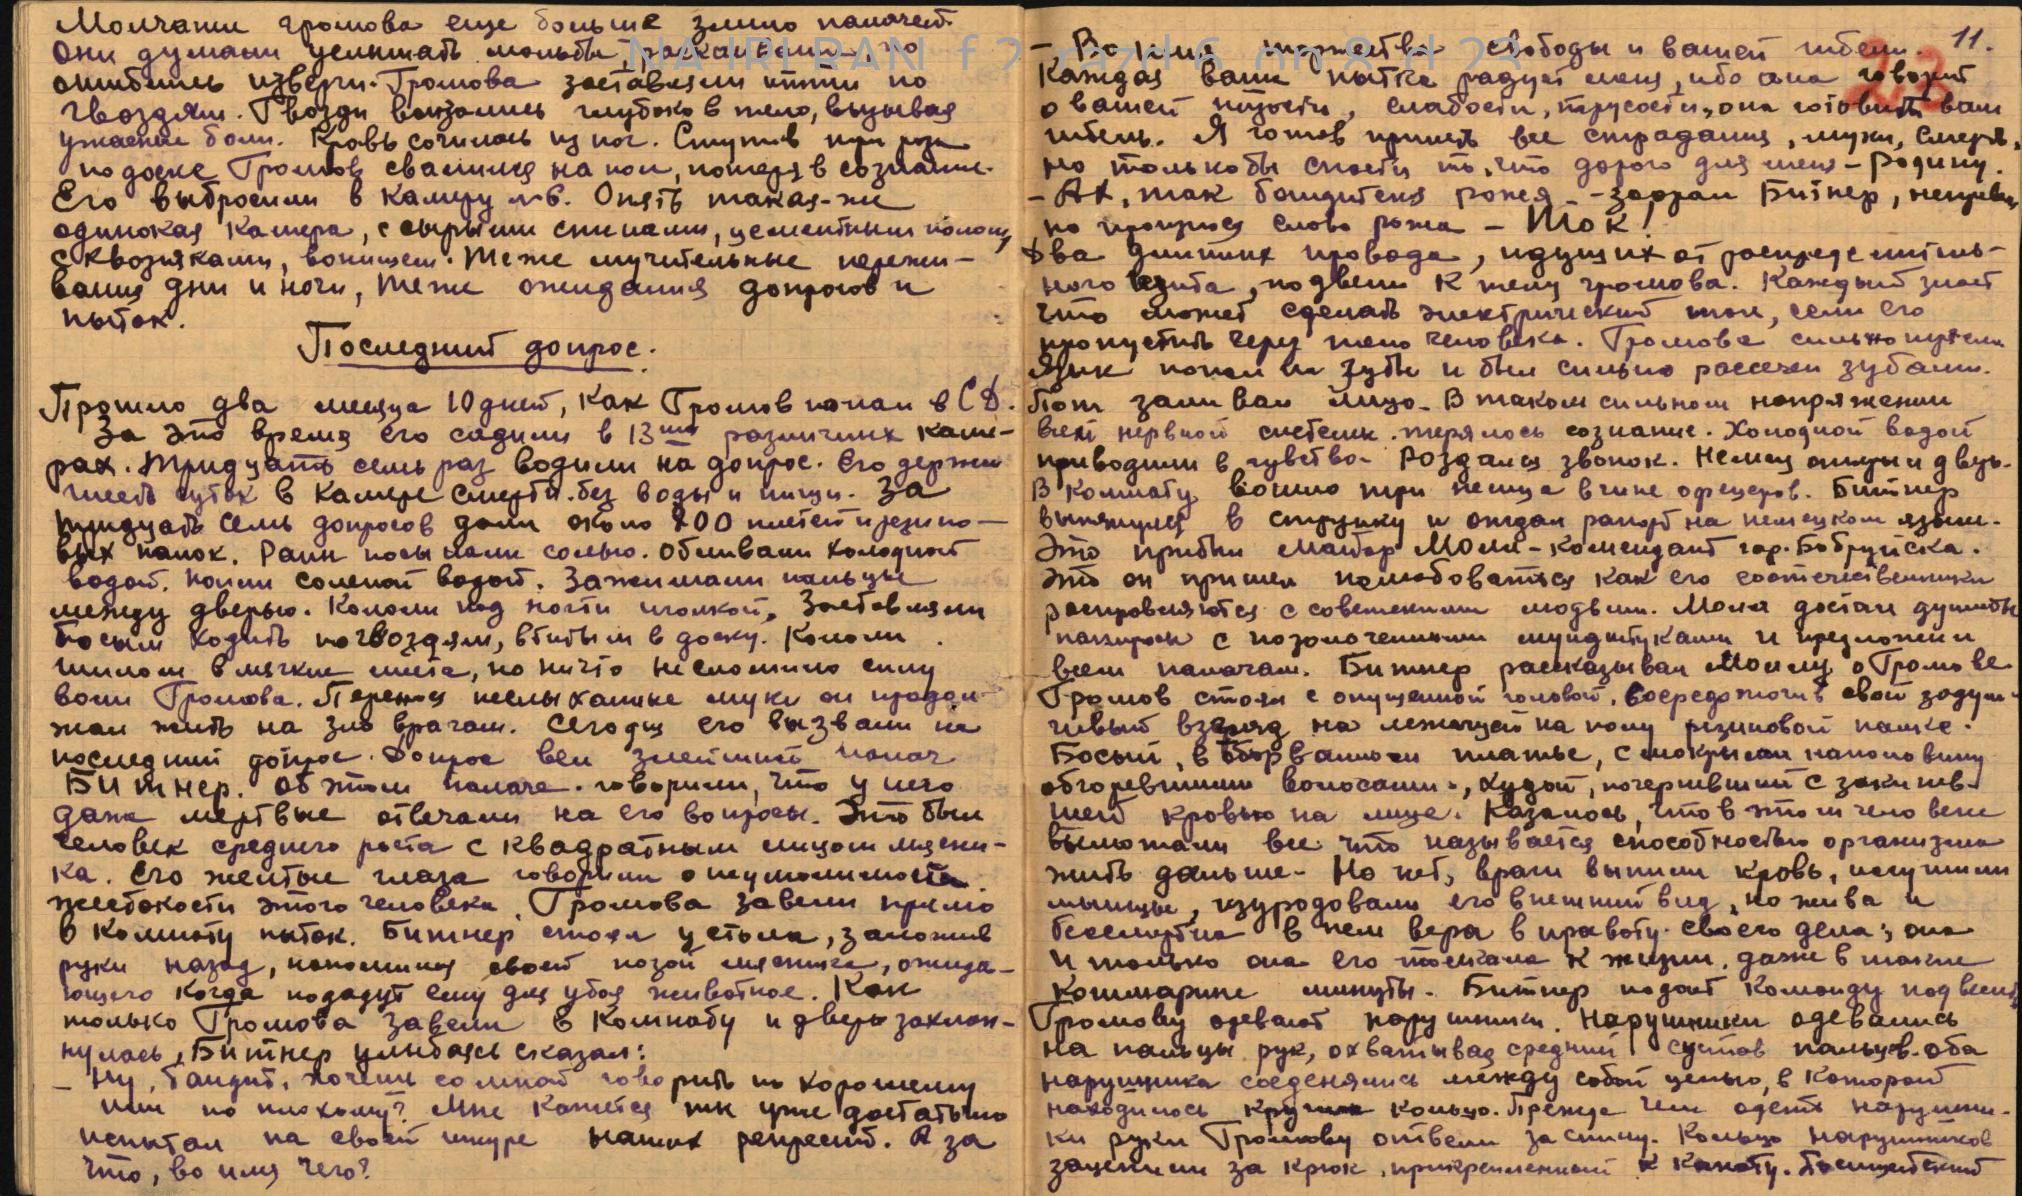 Молчание Громова еще больше злило палачей.
Они думали услышать мольбы, раскаивания но
ошиблись изверги. Громова заставляли итти по
гвоздям. Гвозди вонзались глубоко в тело, вызывая
ужасные боли. Кровь сочилась из ног. Ступив три раза
по доске Громов свалился на пол, потеряв сознание.
Его выбросили в камеру №6. Опять такая-же
одинокая камера, с сырыми стенами, цементным полом,
сквозняками, вонищем. Те же мучительные пережи-
вания дни и ночи, те же ожидания допросов и
пыток.
Последний допрос.
Прошло два месяца 10 дней, как Громов попал в СД.
За это время его садили в 13ти различных каме-
рах. Тридцать семь раз водили на допрос. Его держали
шесть суток в камере смерти без воды и пищи. За
тридцать семь допросов дали около 700 плетей и резино-
вых палок. Раны посыпали солью. Обливали холодной
водой. Поили соленой водой. Зажимали пальцы
между дверью. Кололи под ногти иголкой. Заставляли
босым ходить по гвоздям, вбитым в доску. Кололи
шилом в мягкие места, но ничто не сломило силу
воли Громова. Перенося неслыханные муки он продол-
жал жить на зло врагам. Сегодня его вызвали на
последний допрос. Допрос вел злейший палач
Битнер. Об этом палаче говорили, что у него
даже мертвые отвечали на его вопросы. Это был
человек среднего роста с квадратным лицом мясни-
ка. Его желтые глаза говорили о неумолимости
жестокости этого человека. Громова завели прямо
в комнату пыток. Битнер стоял у стола, заложив
руки назад, напоминая своей позой мясника, ожида-
ющего когда подадут ему для убоя животное. Как
только Громова завели в комнату и дверь захлоп-
нулась, Битнер улыбаясь сказал:
– Ну, бандит, хочешь со мной говорить по хорошему
или по плохому? Мне кажется ты уже достаточно
испытал на своей шкуре наших репрессий. А за
что, во имя чего?
NAJRI RAN f 2 razd 6 op 8 d 23
11.
– Во имя торжества свободы и вашей гибели.
Каждая ваша пытка радует меня, ибо она говорит
о вашей тупости, слабости, трусости, она готовит вам
гибель. Я готов принять все страдания, муки, смерть,
но только бы спасти то, что дорого для меня – Родину.
– Ах, так бандитская рожея – заорал Битнер, неправиль
но произнося слово рожа – Ток!
Два длинных провода, идущих от распределитель-
ного щита, подвели к телу Громова. Каждый знает
что может сделать электрический ток, если его
пропустить через тело человека. Громова сильно
Язык попал на зубы и был сильно рассечен зубами.
Пот заливал лицо. В таком сильном напряжении
всей нервной системы терялось сознание. Холодной водой
приводили в чувство. Раздался звонок. Немец открыл дверь.
В комнату вошло три немца в чине офецеров. Битнер
вытянулся в струнку и отдал рапорт на немецком языке.
Это прибыл майор Моль – комендант гор. Бобруйска.
Это он пришел полюбоваться как его соотечественники
расправляются с советскими людьми. Моль достал душистые
папиросы с позолоченными мундштуками и предложил
всем палачам. Битнер рассказывал Моллу о Громове.
Громов стоял с опущенной головой, сосредоточив свой задум-
чивый взгляд на лежащей на полу резиновой палке.
Босый, в оборванном платье, с мокрыми наполовину
обгоревшими волосами, худой, почерневший с запекшей-
шей кровью на лице. Казалось, что в этом человеке
вымотали все что называется способностью организма
жить дальше. Но нет, враги выпили кровь, иссушили
мышцы, изуродовали его внешний вид, но жива и
бессмертна в нем вера в правоту своего дела; она
и только она его толкала к жизни, даже в такие
кошмарные минуты. Битнер подает команду подвесить
Громову одевают наручники. Наручники одевались
на пальцы рук, охватывая средний сустав пальцев. Оба
наручника соеденялись между собой цепью, в которой
находилось кольцо. Прежде чем одеть наручни-
ки руки Громову отвели за спину. Кольцо наручников
зацепили за крюк, прикрепленный к канату.